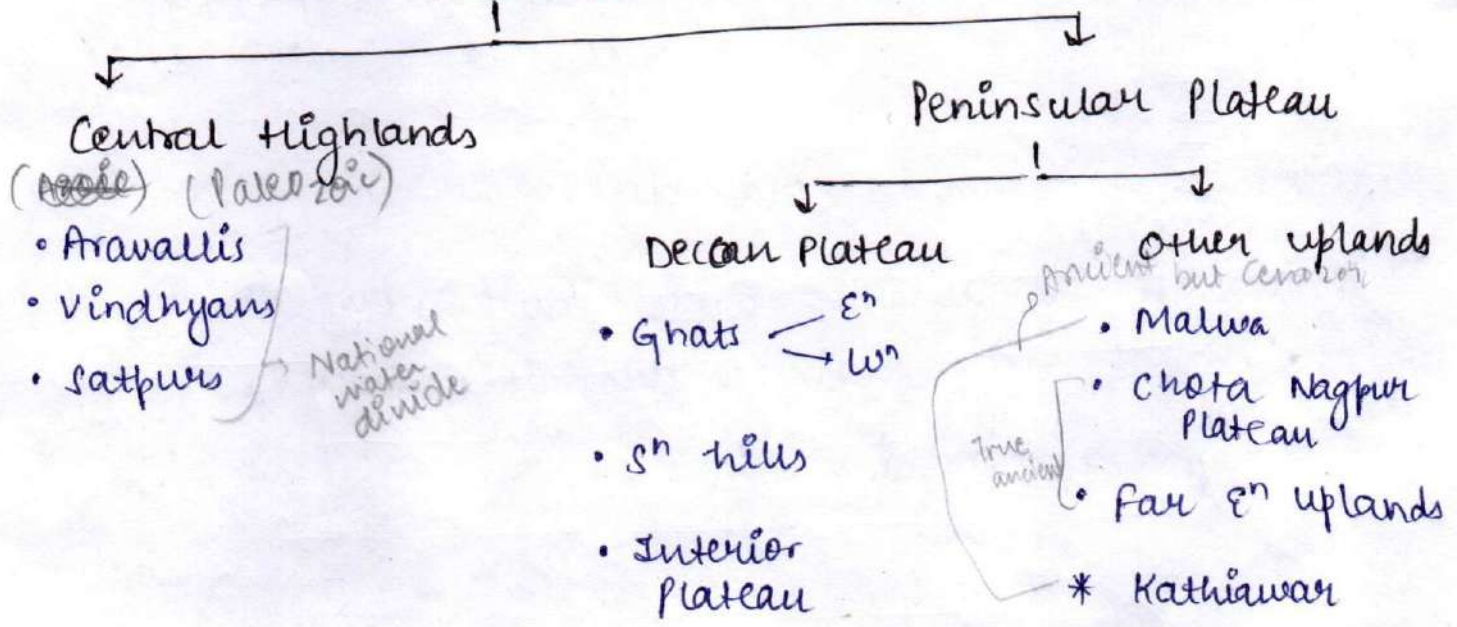 Central Highlands
(Azoic) (Paleozoic)
• Aravallis
• Vindhyans
• Satpurs
National
water
divide
Peninsular Plateau
Deccan Plateau
• Ghats
Eⁿ
Wⁿ
• Sⁿ hills
• Interior
Plateau
Other uplands
Ancient but Cenozoi
• Malwa
• Chota Nagpur
Plateau
True
ancient
• Far Eⁿ uplands
* Kathiawar